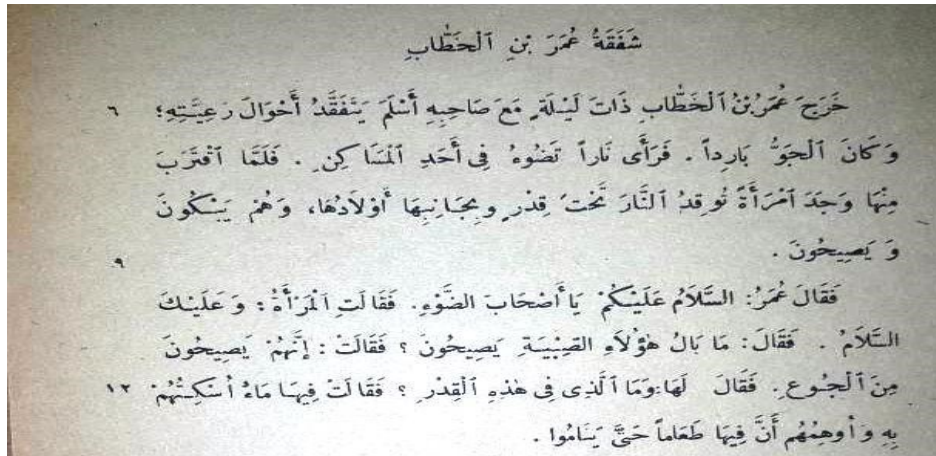 شَفَقَةُ عُمَرَ بْنِ ٱلْخَطَّابِ
خَرَجَ عُمَرُ بْنُ ٱلْخَطَّابِ ذَاتَ لَيْلَةٍ مَعَ صَاحِبِهِ أَسْلَمَ يَتَفَقَّدُ أَحْوَالَ رَعِيَّتِهِ؛ ٦
وَكَانَ ٱلْجَوُّ بَارِداً . فَرَأَى نَاراً تَضُوءُ فِى أَحَدِ ٱلْمَسَاكِنِ . فَلَمَّا ٱقْتَرَبَ
مِنْهَا وَجَدَ ٱمْرَأَةً تُوقِدُ ٱلنَّارَ تَحْتَ قِدْرٍ وبِجَانِبِهَا أَوْلَادُهَا، وَهُمْ يَبْكُونَ
وَ يَصِيحُونَ . ٩
فَقَالَ عُمَرُ: السَّلَامُ عَلَيْكُمْ يَا أَصْحَابَ الضَّوْءِ. فَقَالَتِ ٱلْمَرْأَةُ: وَ عَلَيْكَ
السَّلَامُ . فَقَالَ: مَا بَالُ هٰؤُلَاءِ الصِّبْيَةِ يَصِيحُونَ ؟ فَقَالَتْ: إِنَّهُمْ يَصِيحُونَ
مِنَ ٱلْجُوعِ. فَقَالَ لَهَا: وَمَا ٱلَّذِى فِى هٰذِهِ ٱلْقِدْرِ ؟ فَقَالَتْ فِيهَا مَاءٌ أُسْكِتُهُمْ ١٢
بِهِ وَ أُوهِمُهُم أَنَّ فِيهَا طَعَاماً حَتَّى يَنَامُوا .